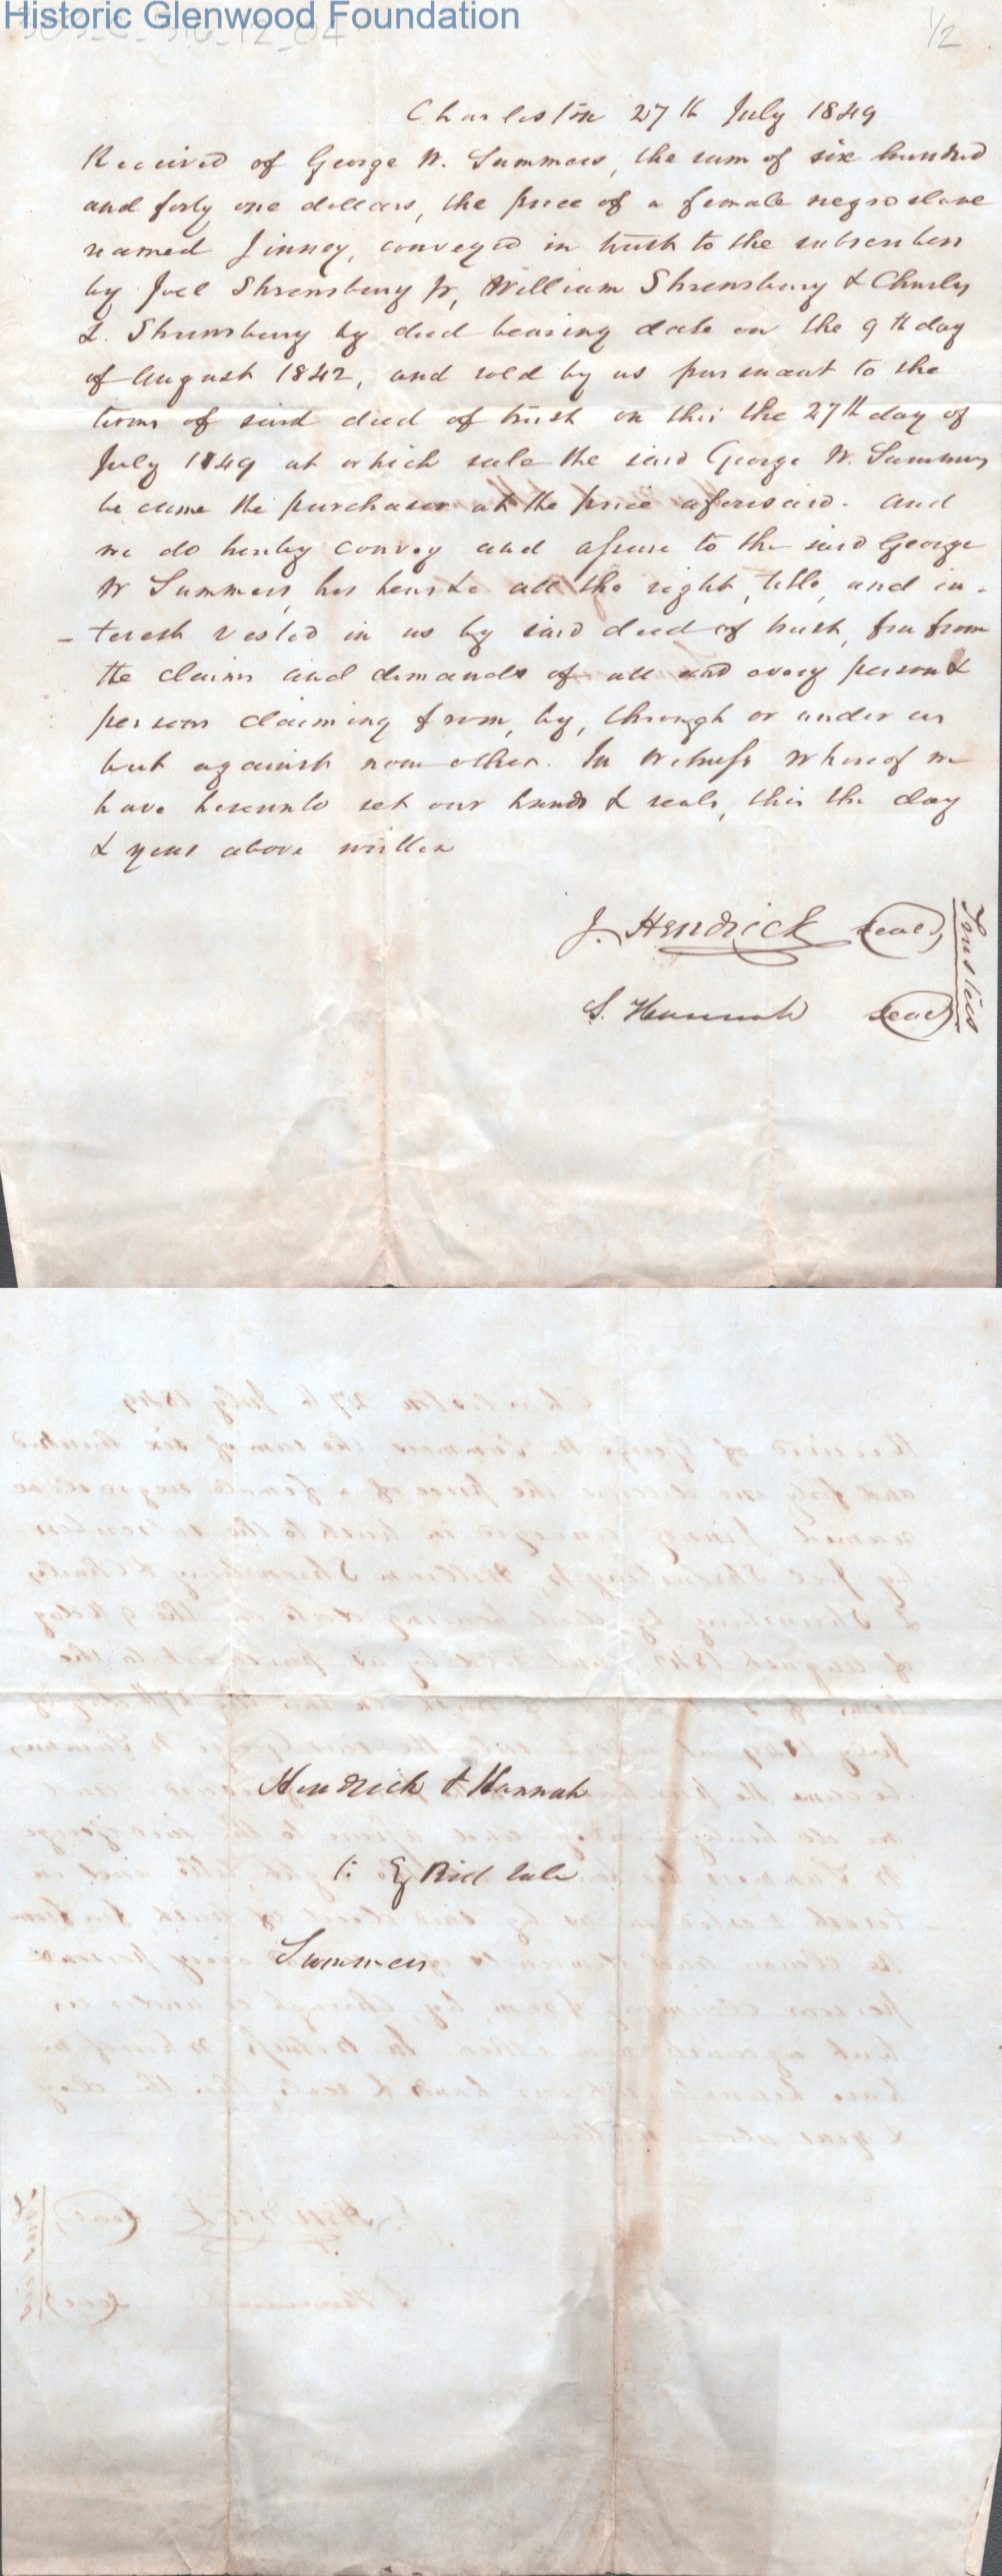 Historic Glenwood Foundation
1/2
Charleston 27th July 1849
Received of George W. Summers, the sum of six hundred
and forty one dollars, the price of a female negro slave
named Jinney, conveyed in trust to the subscribers
by Joel Shrewsbury Jr, William Shrewsbury & Charles
L. Shrewsbury by deed bearing date on the 9th day
of August 1842, and sold by us pursuant to the
terms of said deed of trust on this the 27th day of
July 1849 at which sale the said George W. Summers
became the purchaser at the price aforesaid. and
we do hereby convey and assure to the said George
W Summers, his heirs &c all the right, title, and in-
-terest vested in us by said deed of trust, free from
the claims and demands of all and every person &
persons claiming from, by, through or under us
but against none other. In witness whereof we
have hereunto set our hands & seals, this the day
& year above written
J. Hendrick seal
S. Hannah seal
Trustees
Hendrick & Hannah
Bill sale
Summers